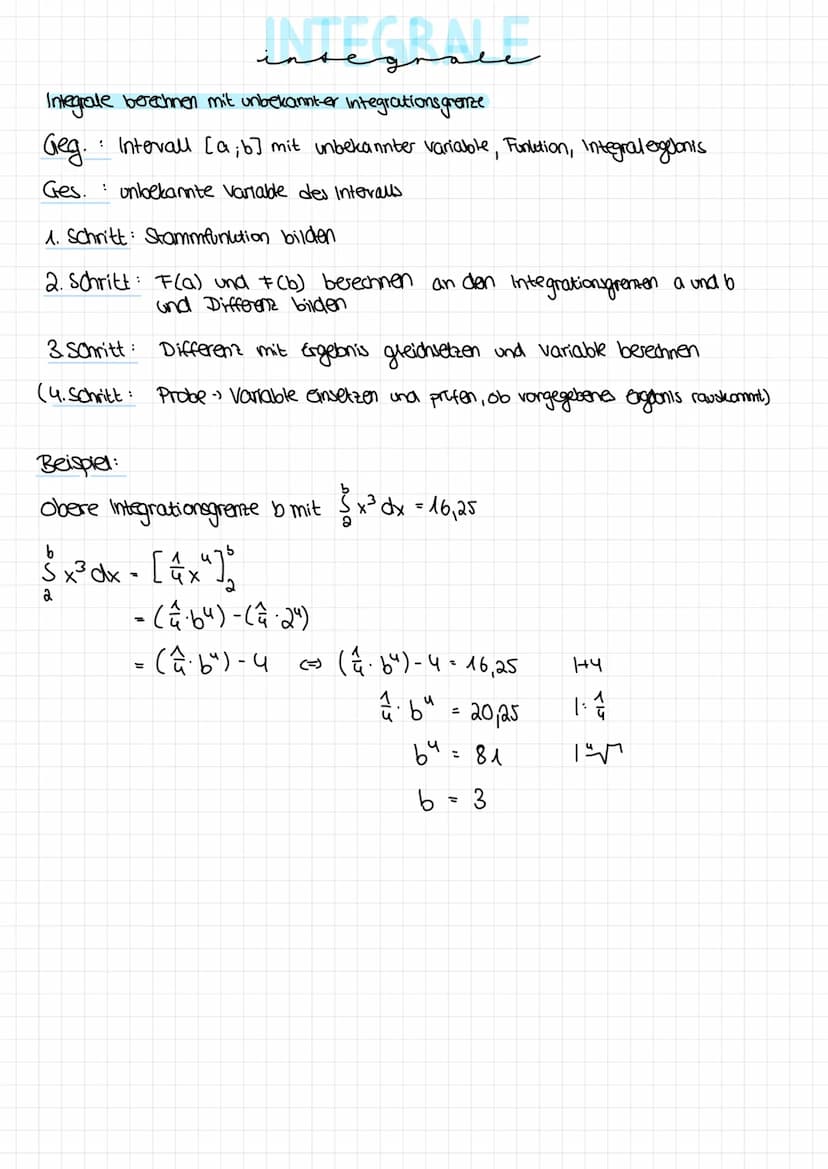 INTEGRALE
integrale
Integrale berechnen mit unbekannter Integrationsgrenze
Geg. : Intervall [a;b] mit unbekannter Variable, Funktion, Integralergebnis
Ges. : unbekannte Variable des Intervalls
1. Schritt: Stammfunktion bilden
2. Schritt: F(a) und F(b) berechnen an den Integrationsgrenzen a und b
und Differenz bilden
3. Schritt: Differenz mit Ergebnis gleichsetzen und Variable berechnen
(4. Schritt: Probe → Variable einsetzen und prüfen, ob vorgegebenes Ergebnis rauskommt)
Beispiel:
Obere Integrationsgrenze b mit ∫₂ᵇ x³ dx = 16,25
∫₂ᵇ x³ dx = [¼x⁴]₂ᵇ
= (¼·b⁴) - (¼·2⁴)
= (¼·b⁴) - 4 ⇔ (¼·b⁴) - 4 = 16,25 |+4
¼·b⁴ = 20,25 |:¼
b⁴ = 81 |⁴√
b = 3